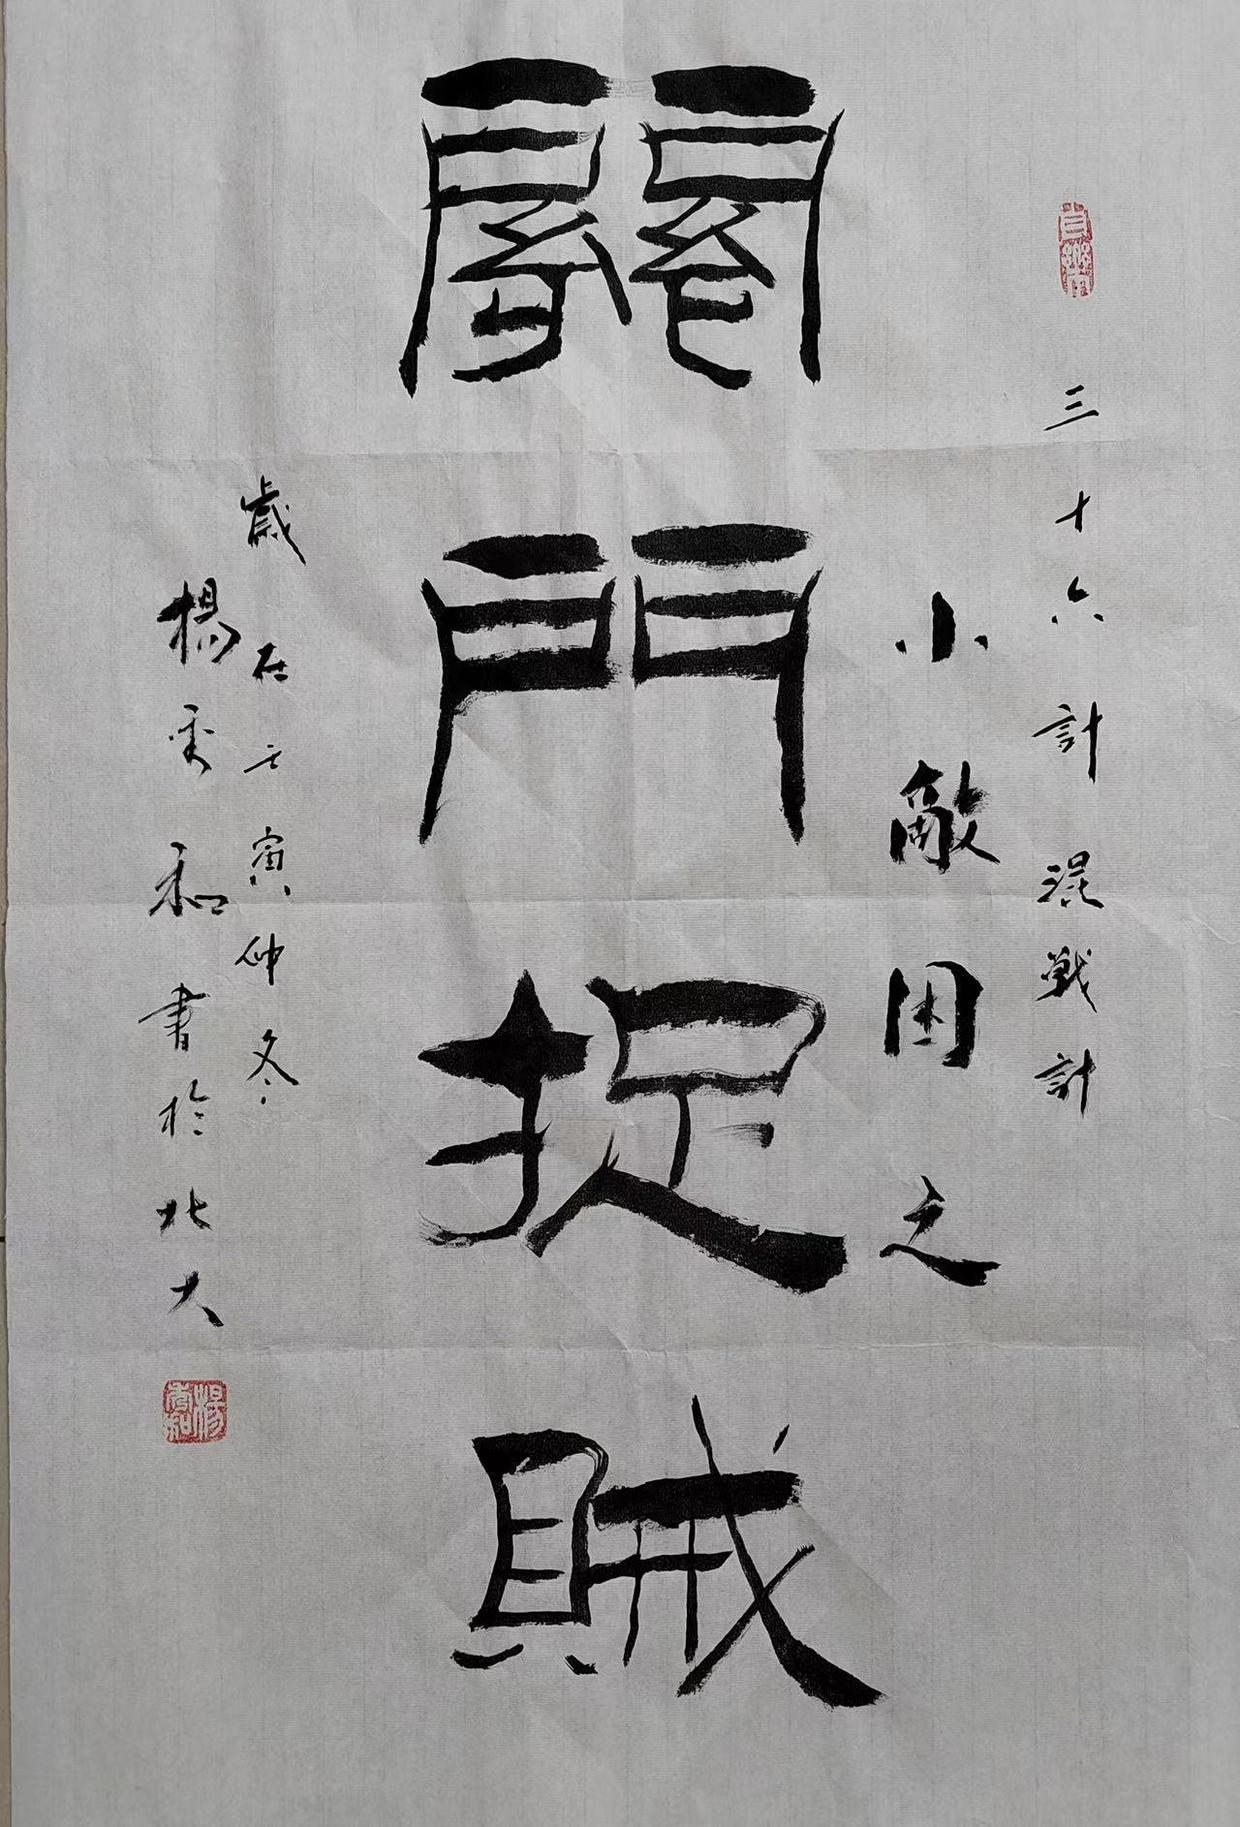 三十六計混戰計
小敵困之
關門捉賊
歲在壬寅仲冬
楊秀和書於北大